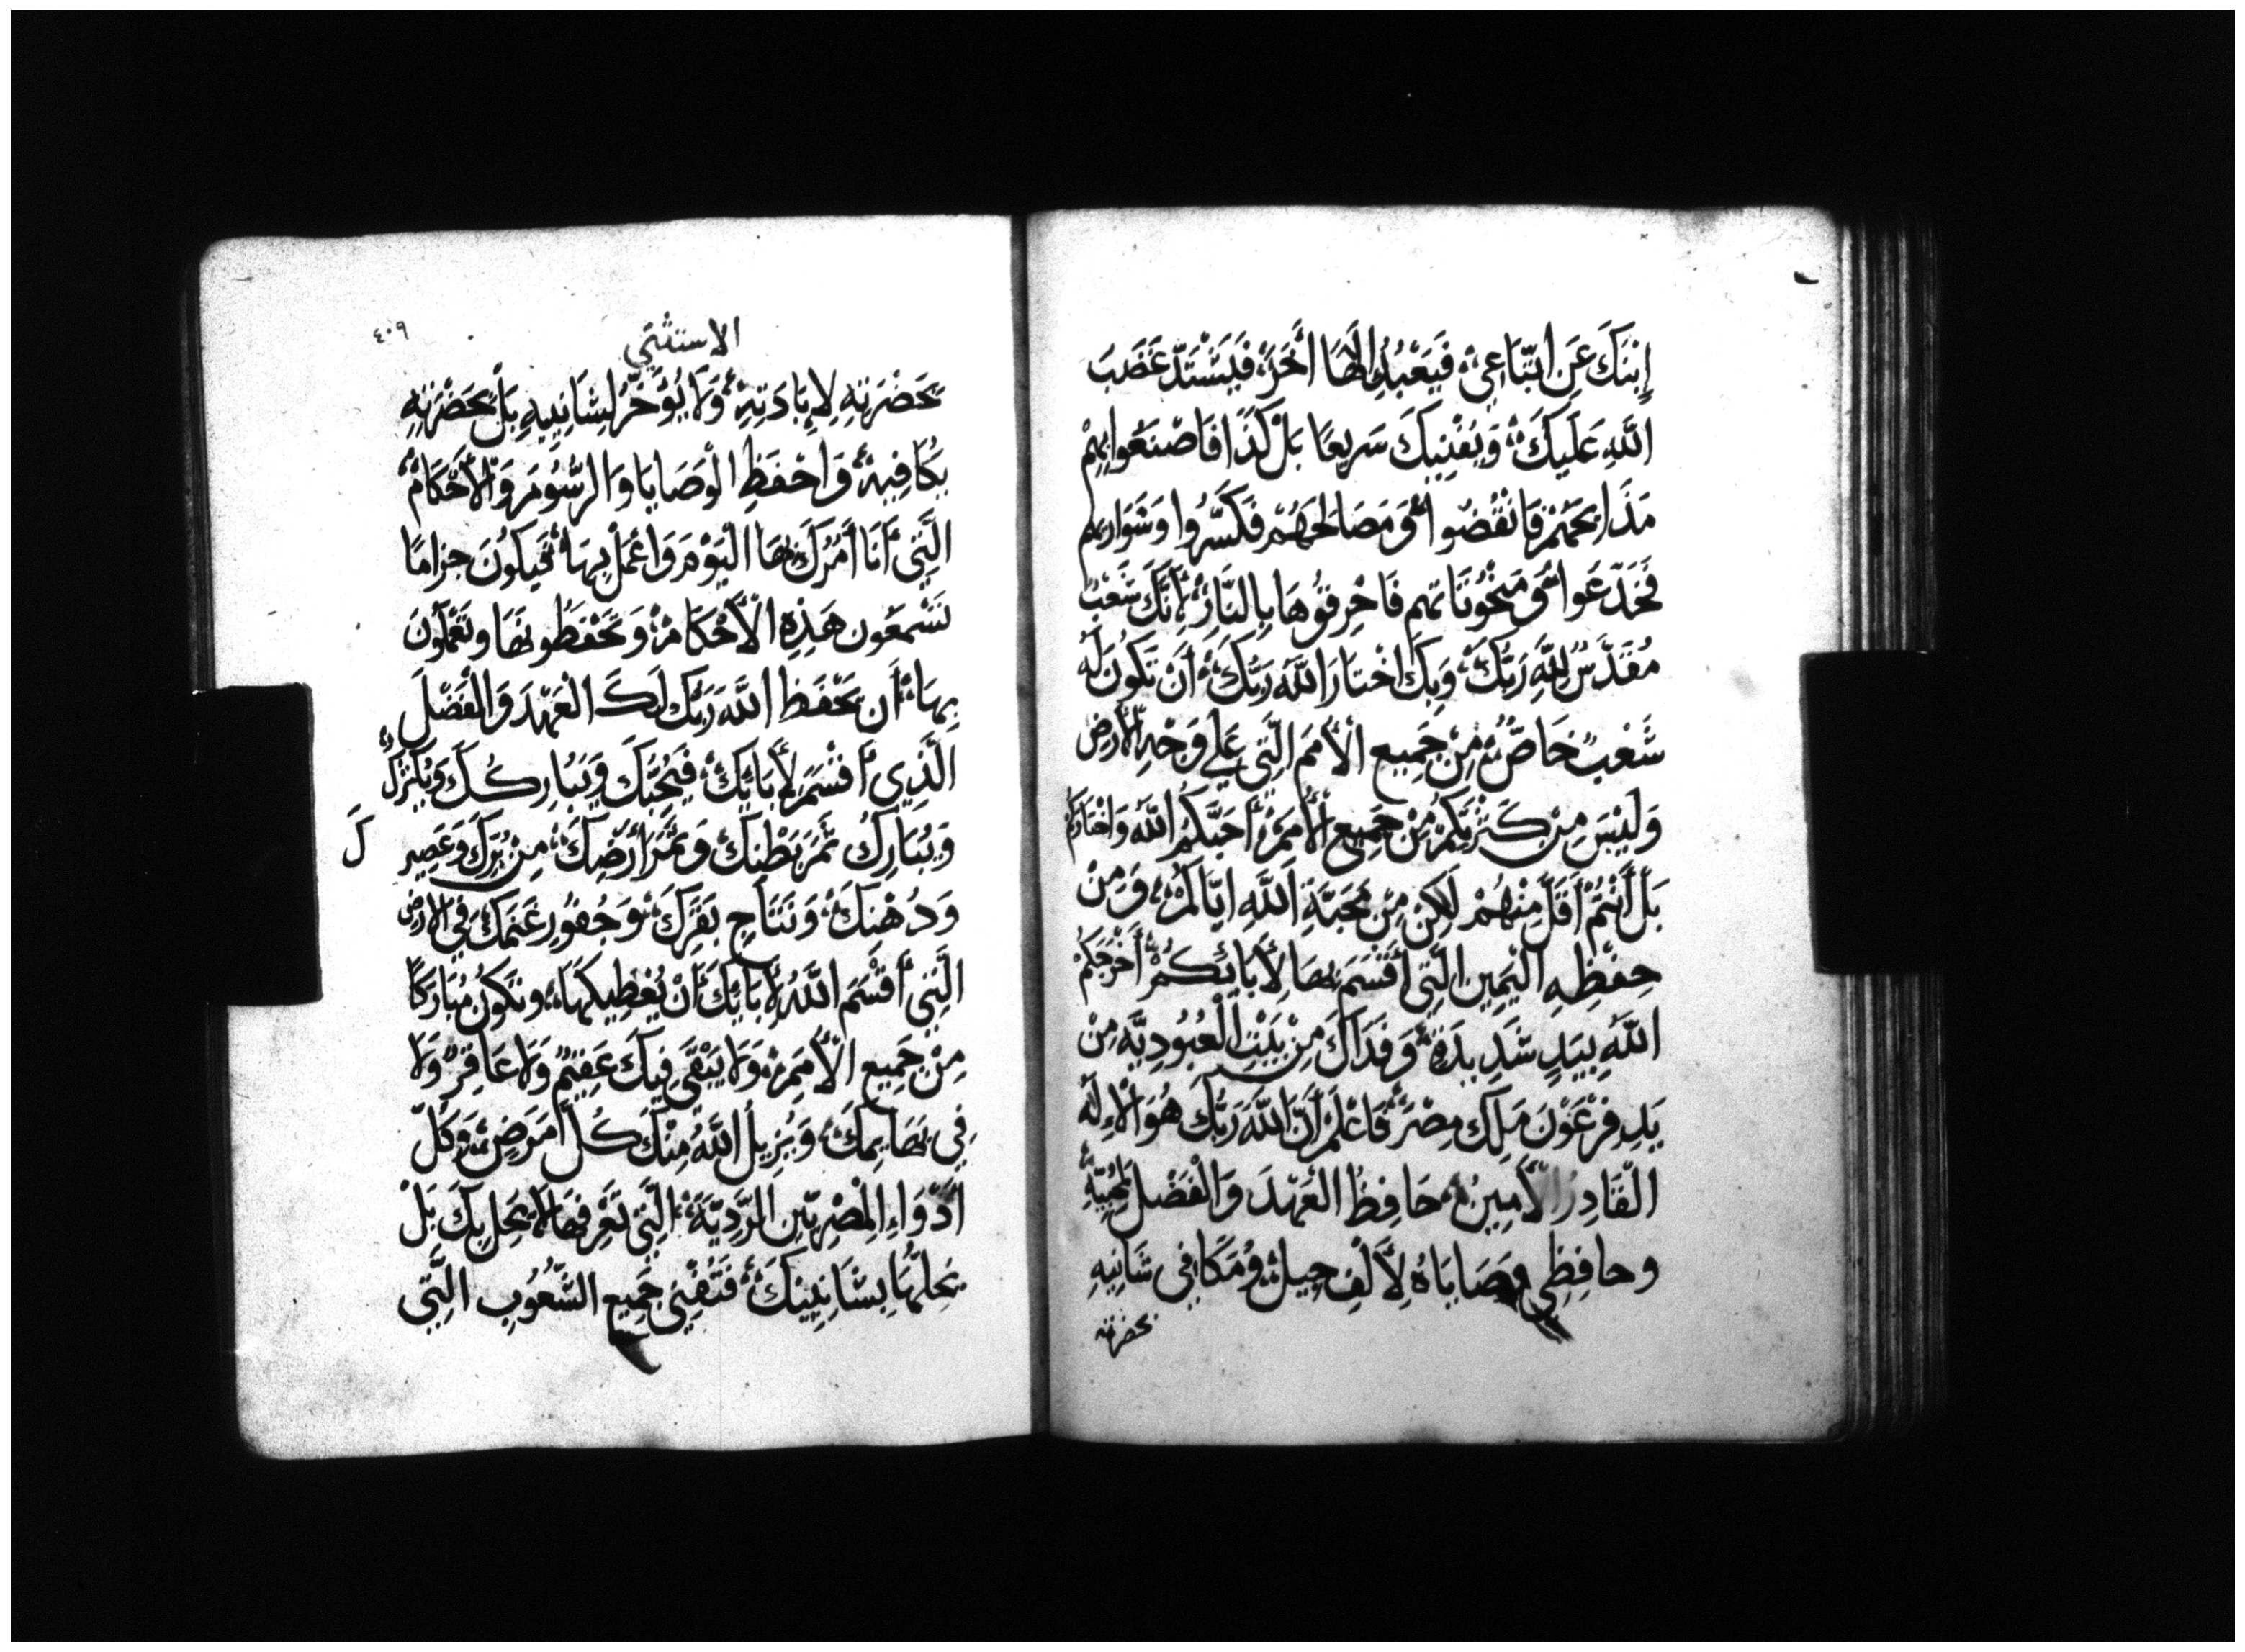 إِبْنَكَ عَنِ اتّبَاعِيْ، فَيَعْبُدُ إِلَاهًا أَخَرَ، فَيَشْتَدّ غَضَبَ
اللَّهِ عَلَيكَ، وَيُفْنِيكَ سَرِيعًا بَلْ كَذَا فَاصْنَعُوا بِهِمْ
مَذَابِحَهُمْ فَانْقُضُوا، وَمَصَالِحَهُمْ فَكَسِّرُوا وَشَوَارِيهم
فَجَدِّعُوا، وَ مَنْحُوتَاتهم فَاحْرِقُوهَا بِالنَّارِ، لِأَنَّكَ شَعْبٌ
مُقَدَّسٌ لِلَّهِ رَبُّكَ، وَبِكَ اخْتَارَ اللَّهَ رَبُّكَ، أَنْ تَكُونَ لَهُ
شَعْبٌ خَاصٌّ، مِنْ جَمِيع الْأُمَمَ الَّتِي عَلي وَجْهِ الْأَرض
وَلَيْسَ مِنْ كَثْرَتِكُمْ مِنْ جَمِيعِ الْأُمَمْ أَحَبَّكُمُ اللَّهُ وَاخْتَارَكُمْ
بَلْ أَنْتُمْ أَقَلّ مِنْهُمْ لَاكِنْ مِنْ مَحَبَّةِ اللَّهِ ايَّاكُمْ، وَمِنْ
حِفْظِهِ الْيَمِين الَّتِي أَقْسَمَ بهَا لِأَبَائكُمْ، أَخْرَجَكُمْ
اللَّهُ بِيَدٍ شَدِيدَةٍ، وَفَدَاكَ مِنْ بَيْتِ الْعُبُودِيَّه مِنْ
يَدِ فِرْعَوْنَ مَلِكِ مِصْرَ، فَاعْلَمْ أَنَّ اللَّهَ رَبُّكَ هُوَ الْإِلَه
الْقَادِرُ الْأَمِينُ، حَافِظُ الْعَهْدَ وَالْفَضْلَ لِمُحِبِّيهِ
وحافِظي وَصَايَاهُ لِأَلْفِ جِيلٍ، وَمُكَافِي شَانِيهِ
بحضرته
٤٠٩
الاستثني
بحَضْرَتِهِ لِإِبَادَتِهِ، وَلَا يُؤَخّرُ لِشَانِييهِ بَلْ بحَضْرَتِهِ
يُكَافِيهْ، وَاحْفَظِ الْوَصَايَا وَالرّسُومَ وَالْأَحْكَامْ،
الَّتِي أَنَا أَمُرُكَ بهَا الْيَوْمَ وَاعْمَلْ بِهَا، فَيكُونَ جزامًا
تَسْمَعُون هَذِهِ الْأَحْكَامْ، وَتَحْفَظُونهَا وتَعْمَلُونَ
بِهَا، أَن يَحْفَظ اللَّهُ رَبُّكَ لَكَ الْعَهْدَ وَالْفَضْلَ
الَّذِي أَقْسَمَ لِأَبَايِكَ، فَيُحِبُّكَ وَيُبَارِكُكَ وَيُكْثِرُكَ
وَيُبَارِكُ ثَمَرَ بَطْنِكَ وَثَمَرَ أَرْضِكَ، مِنْ بُرِّكَ وَعَصِيرِ
كَ
وَدُهْنكَ، وَنَتَاجِ بَقَرِكَ، وَجُفُورِ غَنَمِكَ فِي الارض
الَّتِي أَقْسَم اللَّهُ لِأَبَايِكَ أَنْ يُعْطِيكهَا، وتَكُونَ مُبَارَكًا
مِنْ جَمِيعِ الْأُمَمِ، وَلَا يَبْقَى فِيكَ عَقِيمٌ وَلَا عَاقِرٌ وَلَا
فِي بَهَايمِكَ، وَيُزِيلُ اللَّهُ مِنْكَ كُلّ أَمرَضٍ، وَكُلّ
أَدْوَاءِ الْمِصْرِيِّين الرَّدِيَّةَ، الَّتِي تَعْرِفهَا لَا يحلّ بِكَ بَلْ
يَحِلّهَا بِشَانِيِينكَ، فَتُفْنِي جَمِيع الشُّعُوبِ الَّتِي